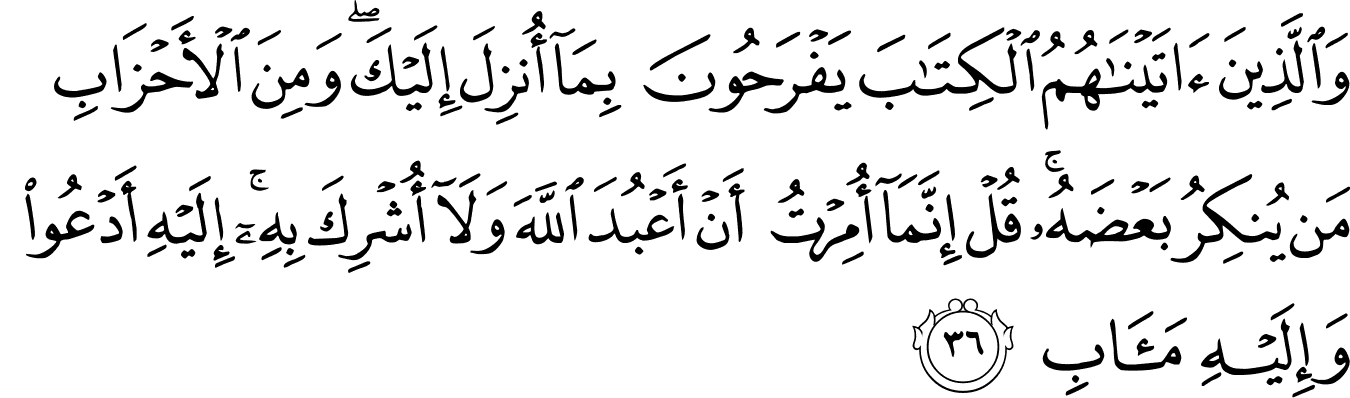 وَٱلَّذِينَ ءَاتَيْنَٰهُمُ ٱلْكِتَٰبَ يَفْرَحُونَ بِمَآ أُنزِلَ إِلَيْكَ ۖ وَمِنَ ٱلْأَحْزَابِ
مَن يُنكِرُ بَعْضَهُۥ ۚ قُلْ إِنَّمَآ أُمِرْتُ أَنْ أَعْبُدَ ٱللَّهَ وَلَآ أُشْرِكَ بِهِۦٓ ۚ إِلَيْهِ أَدْعُوا۟
وَإِلَيْهِ مَـَٔابِ ٣٦